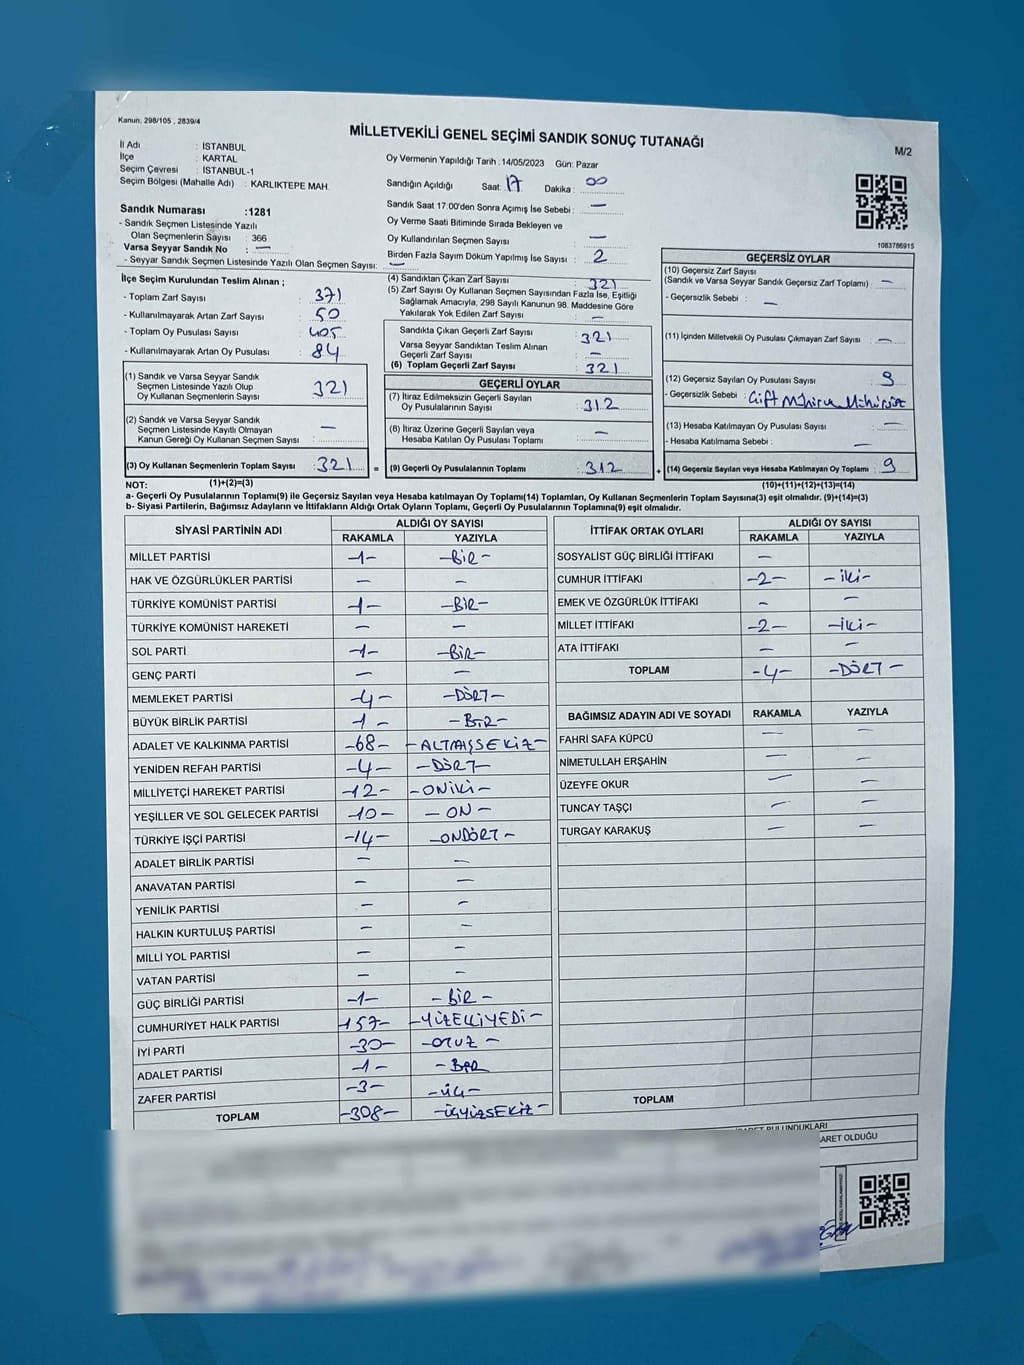 Kanun, 298/105 , 2839/4
MİLLETVEKİLİ GENEL SEÇİMİ SANDIK SONUÇ TUTANAĞI
M/2
İl Adı : İSTANBUL
İlçe : KARTAL
Seçim Çevresi : İSTANBUL-1
Seçim Bölgesi (Mahalle Adı) : KARLIKTEPE MAH.
Sandık Numarası :1281
- Sandık Seçmen Listesinde Yazılı
Olan Seçmenlerin Sayısı : 366
Varsa Seyyar Sandık No : —
- Seyyar Sandık Seçmen Listesinde Yazılı Olan Seçmen Sayısı: —
Oy Vermenin Yapıldığı Tarih : 14/05/2023 Gün: Pazar
Sandığın Açıldığı Saat: 17 Dakika : 00
Sandık Saat 17:00'den Sonra Açımış İse Sebebi : —
Oy Verme Saati Bitiminde Sırada Bekleyen ve
Oy Kullandırılan Seçmen Sayısı : —
Birden Fazla Sayım Döküm Yapılmış İse Sayısı : 2
1083786915
İlçe Seçim Kurulundan Teslim Alınan ;
- Toplam Zarf Sayısı : 371
- Kullanılmayarak Artan Zarf Sayısı : 50
- Toplam Oy Pusulası Sayısı : 405
- Kullanılmayarak Artan Oy Pusulası : 84
(1) Sandık ve Varsa Seyyar Sandık
Seçmen Listesinde Yazılı Olup
Oy Kullanan Seçmenlerin Sayısı : 321
(2) Sandık ve Varsa Seyyar Sandık
Seçmen Listesinde Kayıtlı Olmayan
Kanun Gereği Oy Kullanan Seçmen Sayısı : —
(3) Oy Kullanan Seçmenlerin Toplam Sayısı : 321 =
(1)+(2)=(3)
(4) Sandıktan Çıkan Zarf Sayısı : 321
(5) Zarf Sayısı Oy Kullanan Seçmen Sayısından Fazla İse, Eşitliği
Sağlamak Amacıyla, 298 Sayılı Kanunun 98. Maddesine Göre
Yakılarak Yok Edilen Zarf Sayısı : —
Sandıkta Çıkan Geçerli Zarf Sayısı : 321
Varsa Seyyar Sandıktan Teslim Alınan
Geçerli Zarf Sayısı : —
(6) Toplam Geçerli Zarf Sayısı : 321
GEÇERLİ OYLAR
(7) İtiraz Edilmeksizin Geçerli Sayılan
Oy Pusulalarının Sayısı : 312
(8) İtiraz Üzerine Geçerli Sayılan veya
Hesaba Katılan Oy Pusulası Toplamı : —
(9) Geçerli Oy Pusulalarının Toplamı : 312 +
GEÇERSİZ OYLAR
(10) Geçersiz Zarf Sayısı
(Sandık ve Varsa Seyyar Sandık Geçersiz Zarf Toplamı) : —
- Geçersizlik Sebebi : —
(11) İçinden Milletvekili Oy Pusulası Çıkmayan Zarf Sayısı : —
(12) Geçersiz Sayılan Oy Pusulası Sayısı : 9
- Geçersizlik Sebebi : Çift
(13) Hesaba Katılmayan Oy Pusulası Sayısı : —
- Hesaba Katılmama Sebebi : —
(14) Geçersiz Sayılan veya Hesaba Katılmayan Oy Toplamı : 9
(10)+(11)+(12)+(13)=(14)
NOT:
a- Geçerli Oy Pusulalarının Toplamı(9) ile Geçersiz Sayılan veya Hesaba katılmayan Oy Toplamı(14) Toplamları, Oy Kullanan Seçmenlerin Toplam Sayısına(3) eşit olmalıdır. (9)+(14)=(3)
b- Siyasi Partilerin, Bağımsız Adayların ve İttifakların Aldığı Oy Oyların Toplamı, Geçerli Oy Pusulalarının Toplamına(9) eşit olmalıdır.
SİYASİ PARTİNİN ADI ALDIĞI OY SAYISI
RAKAMLA YAZIYLA
MİLLET PARTİSİ -1- -BİR-
HAK VE ÖZGÜRLÜKLER PARTİSİ — —
TÜRKİYE KOMÜNİST PARTİSİ -1- -BİR-
TÜRKİYE KOMÜNİST HAREKETİ — —
SOL PARTİ -1- -BİR-
GENÇ PARTİ — —
MEMLEKET PARTİSİ -4- -DÖRT-
BÜYÜK BİRLİK PARTİSİ -1- -BİR-
ADALET VE KALKINMA PARTİSİ -68- -ALTMIŞSEKİZ-
YENİDEN REFAH PARTİSİ -4- -DÖRT-
MİLLİYETÇİ HAREKET PARTİSİ -12- -ONİKİ-
YEŞİLLER VE SOL GELECEK PARTİSİ -10- -ON-
TÜRKİYE İŞÇİ PARTİSİ -14- -ONDÖRT-
ADALET BİRLİK PARTİSİ — —
ANAVATAN PARTİSİ — —
YENİLİK PARTİSİ — —
HALKIN KURTULUŞ PARTİSİ — —
MİLLİ YOL PARTİSİ — —
VATAN PARTİSİ — —
GÜÇ BİRLİĞİ PARTİSİ -1- -BİR-
CUMHURİYET HALK PARTİSİ -157- -YÜZELLİYEDİ-
İYİ PARTİ -30- -OTUZ-
ADALET PARTİSİ -1- -BİR
ZAFER PARTİSİ -3- -ÜÇ-
TOPLAM -308- -ÜÇYÜZSEKİZ-
İTTİFAK ORTAK OYLARI ALDIĞI OY SAYISI
RAKAMLA YAZIYLA
SOSYALİST GÜÇ BİRLİĞİ İTTİFAKI —
CUMHUR İTTİFAKI -2- -İKİ-
EMEK VE ÖZGÜRLÜK İTTİFAKI — —
MİLLET İTTİFAKI -2- -İKİ-
ATA İTTİFAKI — —
TOPLAM -4- -DÖRT-
BAĞIMSIZ ADAYIN ADI VE SOYADI RAKAMLA YAZIYLA
FAHRİ SAFA KÜPCÜ — —
NİMETULLAH ERŞAHİN — —
ÜZEYFE OKUR — —
TUNCAY TAŞÇI — —
TURGAY KARAKUŞ — —
TOPLAM
BULUNDUKLARI
ARET OLDUĞU